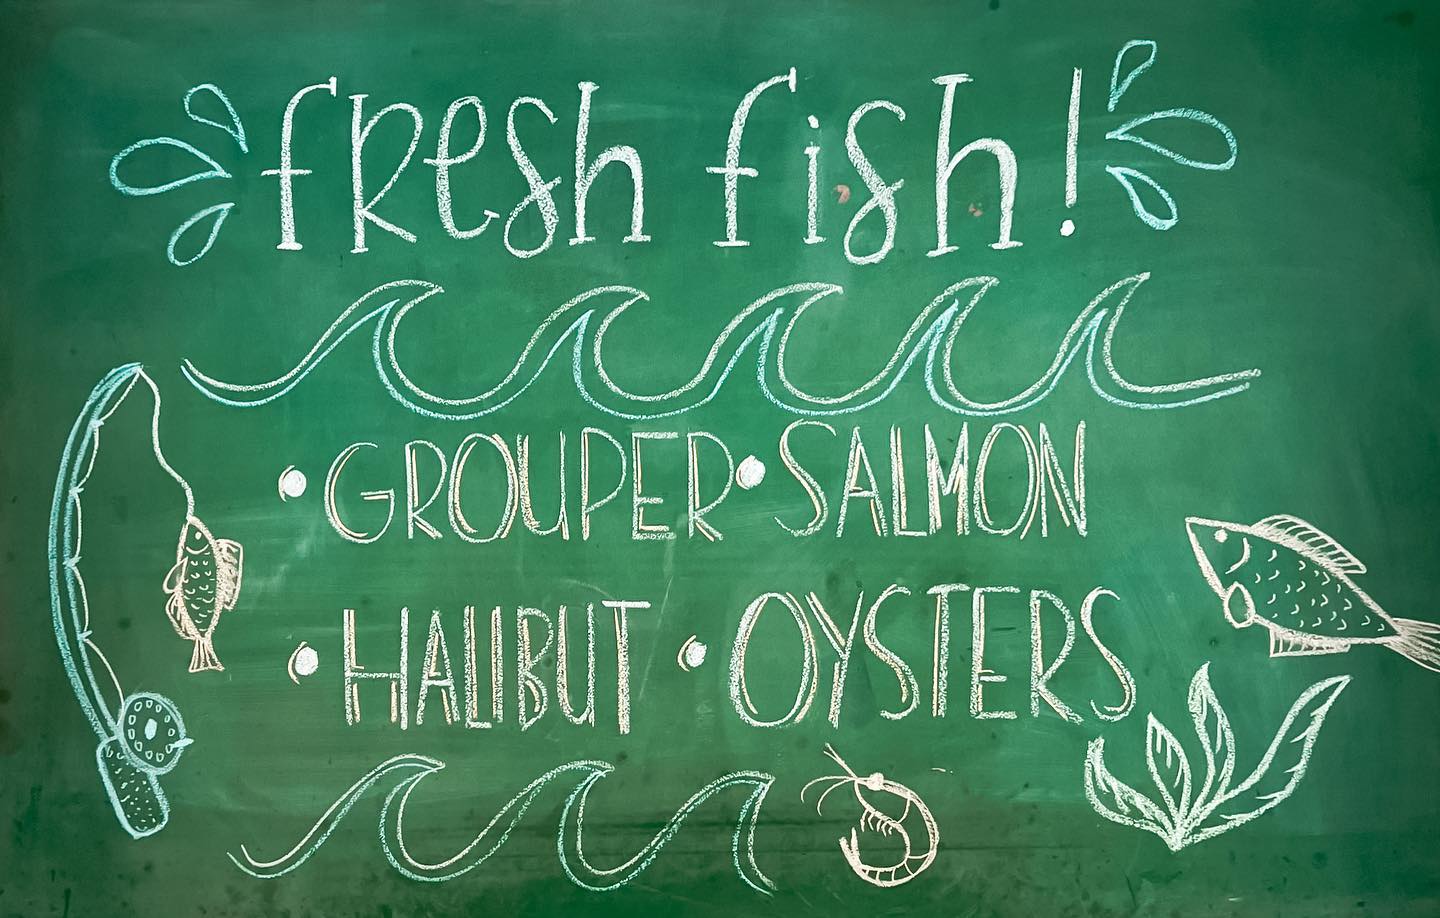 fresh fish!
• GROUPER • SALMON
• HALIBUT • OYSTERS